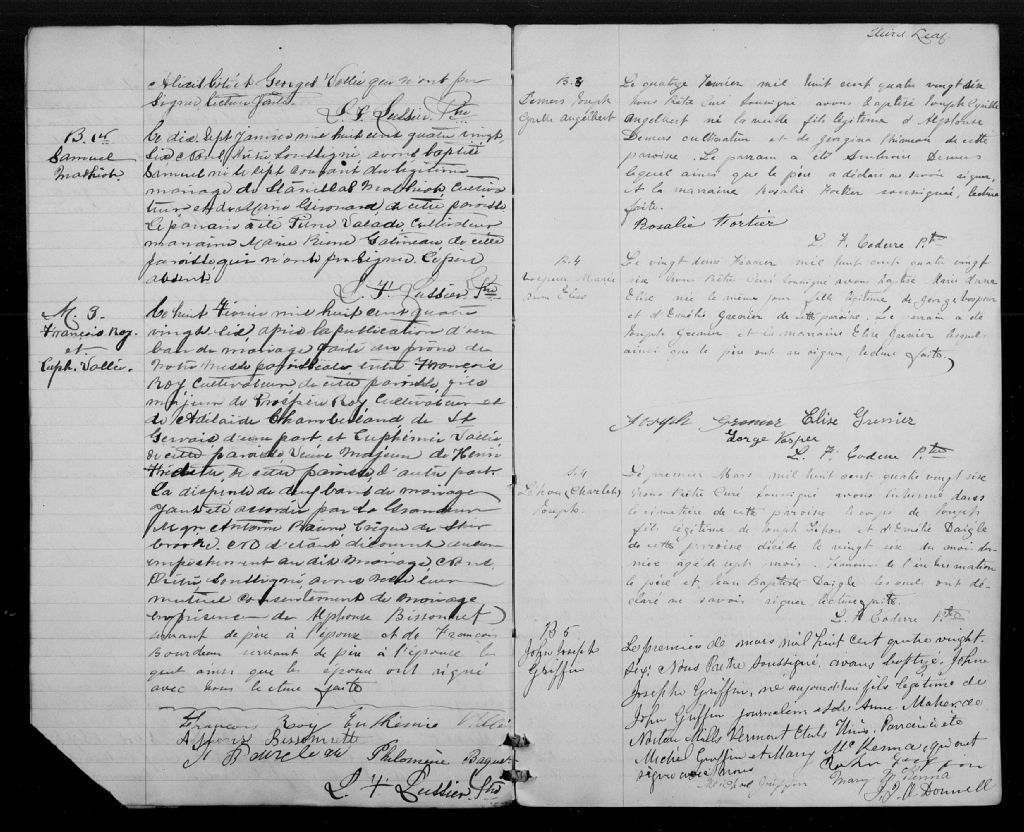 Georges Vallée qui n'ont pu
signer lecture faite
L. F. Lussier Ptre
B. 1er
Samuel
Mathiot.
Le dix sept Janvier mil huit cent quatre vingt
six Nous Prêtre soussigné, avons baptisé
Samuel né le sept courant du légitime
mariage de Stanislas Mathiot Cultiva
teur et de Marie Girouard de cette paroisse
Le parrain a été Pierre Valade, Cultivateur
marraine Marie Reine Galineau de cette
paroisse qui n'ont pu signer. Le père
absent.
L. F. Lussier Ptre
M. 3.
François Roy.
et
Euph. Vallée.
Le huit Février mil huit cent quatre
vingt six, après la publication d'un
ban de mariage faite au prône de
notre messe paroissiale, entre François
Roy Cultivateur de cette paroisse, fils
majeur de Prospère Roy Cultivateur et
de Adelaide Chamberland de St
Gervais d'une part, et Euphémie Vallée,
de cette paroisse Veuve Majeur de Henri
de cette paroisse, d'autre part.
La dispense de deux bans de mariage
ayant été accordée par Sa Grandeur
Mgr Antoine Racine Evêque de Sher
brooke. Et n'étant découvert aucun
empêchement au dit Mariage, Nous
Prêtre soussigné, avons reçu leur
mutuel consentement de mariage
en présence de Alphonse Bissonnet
servant de père à l'époux et de François
Bourdeau servant de père à l'épouse le
quel ainsi que les époux ont signé
avec nous lecture faite
François Roy Euthémie Vallé
Bissonnette
Philomène
L. F. Lussier, Ptre
Third Leaf.
B. 3
Demers Joseph
Cyrille Angelbert
Le quatorze Février mil huit cent quatre vingt six
Nous Prêtre Curé soussigné avons baptisé Joseph Cyrille
Angelbert né la veille fils légitime d'Alphonse
Demers cultivateur et de Georgina de cette
paroisse. Le parrain a été Ambroise Demers
lequel ainsi que le père a déclaré ne savoir signer,
et la marraine Rosalie Fortier soussignée, lecture
faite.
Rosalie Fortier
L. F. Coderre Ptre
B. 4
Vosper Marie
Elise
Le vingt deux Février mil huit cent quatre vingt
six Nous Prêtre Curé soussigné avons baptisé Marie
Elise née le même jour fille légitime de George Vosper
et d'Emélie Grenier de cette paroisse. Le parrain a été
Joseph Grenier et la marraine Elise Grenier lesquels
ainsi que le père ont su signer, lecture faite.
Joseph Grenier Elise Grenier
George Vosper
L. F. Coderre Ptre
S. 4
(Charles)
Joseph.
Le premier Mars mil huit cent quatre vingt six
Nous Prêtre Curé soussigné avons inhumé dans
le cimetière de cette paroisse le corps de Joseph
fils légitime de Joseph et d'Emélie Daigle
de cette paroisse décédé le vingt six du mois der-
nier agé de sept mois. Témoins de l'inhumation
le père et Jean Baptiste Daigle lesquels ont dé-
claré ne savoir signer lecture faite.
L. F. Coderre Ptre
B 5
John Joseph
Griffin
Le premier de mars mil huit cent quatre vingt-
six; Nous Prêtre soussigné, avons baptizé, John
Joseph Griffin, né aujourd'hui fils légitime de
John Griffin journalier et de Anne Maher de
Norton Mills Vermont Etats Unis. Parrain a été
Michel Griffin et Mary McKenna; qui ont
signé avec nous
Michael Griffin Mary McKenna
J. J. O Donnell